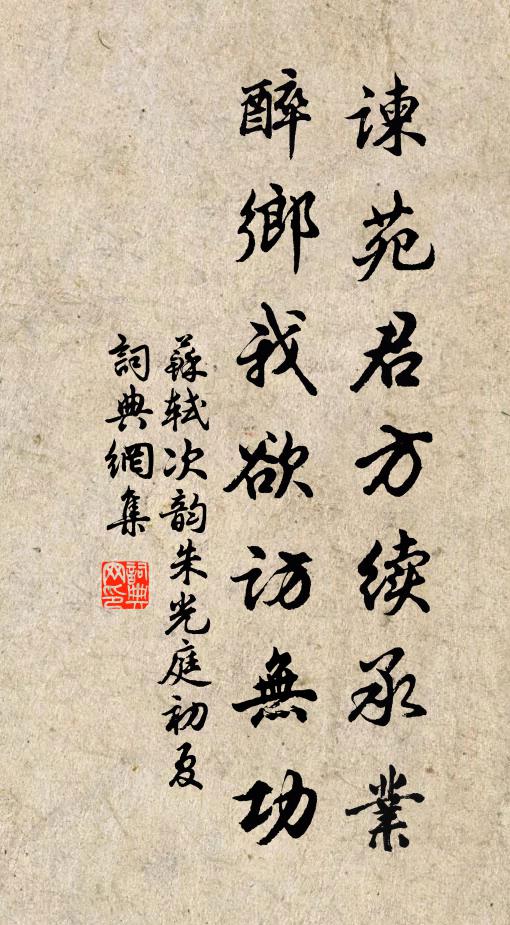 谏苑君方续承業
醉鄉我欲訪無功
蘇軾次韵朱光庭初夏
詞典網集
詞典网印